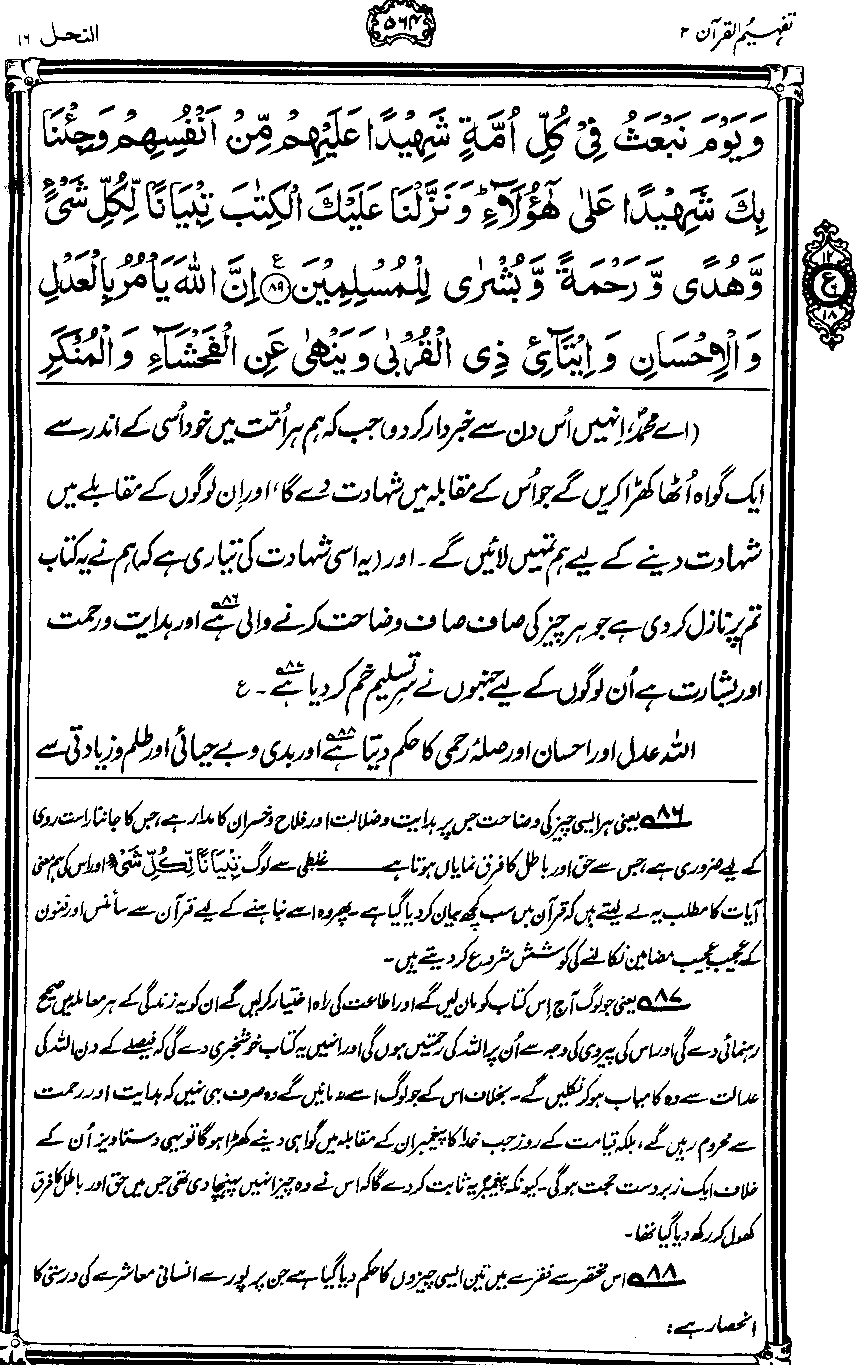 تفہیم القرآن ۲
۵۶۴
النحل ۱۶
وَيَوْمَ نَبْعَثُ فِيْ كُلِّ اُمَّةٍ شَهِيْدًا عَلَيْهِمْ مِّنْ اَنْفُسِهِمْ وَجِئْنَا
بِكَ شَهِيْدًا عَلٰى هٰٓؤُلَآءِ ؕ وَنَزَّلْنَا عَلَيْكَ الْكِتٰبَ تِبْيَانًا لِّكُلِّ شَيْءٍ
وَّهُدًى وَّرَحْمَةً وَّبُشْرٰى لِلْمُسْلِمِيْنَ ﴿۸۹﴾ ع اِنَّ اللّٰهَ يَاْمُرُ بِالْعَدْلِ
وَالْاِحْسَانِ وَاِيْتَآئِ ذِي الْقُرْبٰى وَيَنْهٰى عَنِ الْفَحْشَآءِ وَالْمُنْكَرِ
۱۲
ع
۶
۱۸
(اے محمدؐ، انہیں اُس دن سے خبردار کر دو) جب کہ ہم ہر اُمّت میں خود اُسی کے اندر سے
ایک گواہ اُٹھا کھڑا کریں گے جو اُس کے مقابلہ میں شہادت دے گا، اور اِن لوگوں کے مقابلے میں
شہادت دینے کے لیے ہم تمہیں لائیں گے۔ اور (یہ اسی شہادت کی تیاری ہے کہ) ہم نے یہ کتاب
تم پر نازل کر دی ہے جو ہر چیز کی صاف صاف وضاحت کرنے والی ہے۸۶ اور ہدایت و رحمت
اور بشارت ہے اُن لوگوں کے لیے جنہوں نے سرِ تسلیم خم کر دیا ہے۸۷۔ ع
اللہ عدل اور احسان اور صلۂ رحمی کا حکم دیتا ہے۸۸ اور بدی و بے حیائی اور ظلم و زیادتی سے
۸۶ یعنی ہر ایسی چیز کی وضاحت جس پر ہدایت و ضلالت اور فلاح و خسران کا مدار ہے، جس کا جاننا راست روی
کے لیے ضروری ہے، جس سے حق اور باطل کا فرق نمایاں ہوتا ہے ــــــ غلطی سے لوگ تِبْيَانًا لِّكُلِّ شَيْءٍ اور اس کی ہم معنی
آیات کا مطلب یہ لے لیتے ہیں کہ قرآن میں سب کچھ بیان کر دیا گیا ہے۔ پھر وہ اسے نباہنے کے لیے قرآن سے سائنس اور فنون
کے عجیب عجیب مضامین نکالنے کی کوشش شروع کر دیتے ہیں۔
۸۷ یعنی جو لوگ آج اِس کتاب کو مان لیں گے اور اطاعت کی راہ اختیار کر لیں گے ان کو یہ زندگی کے ہر معاملہ میں صحیح
رہنمائی دے گی اور اس کی پیروی کی وجہ سے اُن پر اللہ کی رحمتیں ہوں گی اور انہیں یہ کتاب خوشخبری دے گی کہ فیصلے کے دن اللہ کی
عدالت سے وہ کامیاب ہو کر نکلیں گے۔ بخلاف اس کے جو لوگ اسے نہ مانیں گے وہ صرف یہی نہیں کہ ہدایت اور رحمت
سے محروم رہیں گے، بلکہ قیامت کے روز جب خدا کا پیغمبر ان کے مقابلہ میں گواہی دینے کھڑا ہوگا تو یہی دستاویز اُن کے
خلاف ایک زبردست حجت ہوگی۔ کیونکہ پیغمبر یہ ثابت کر دے گا کہ اس نے وہ چیز انہیں پہنچا دی تھی جس میں حق اور باطل کا فرق
کھول کر رکھ دیا گیا تھا۔
۸۸ اس مختصر سے فقرے میں تین ایسی چیزوں کا حکم دیا گیا ہے جن پر پورے انسانی معاشرے کی درستی کا
انحصار ہے: